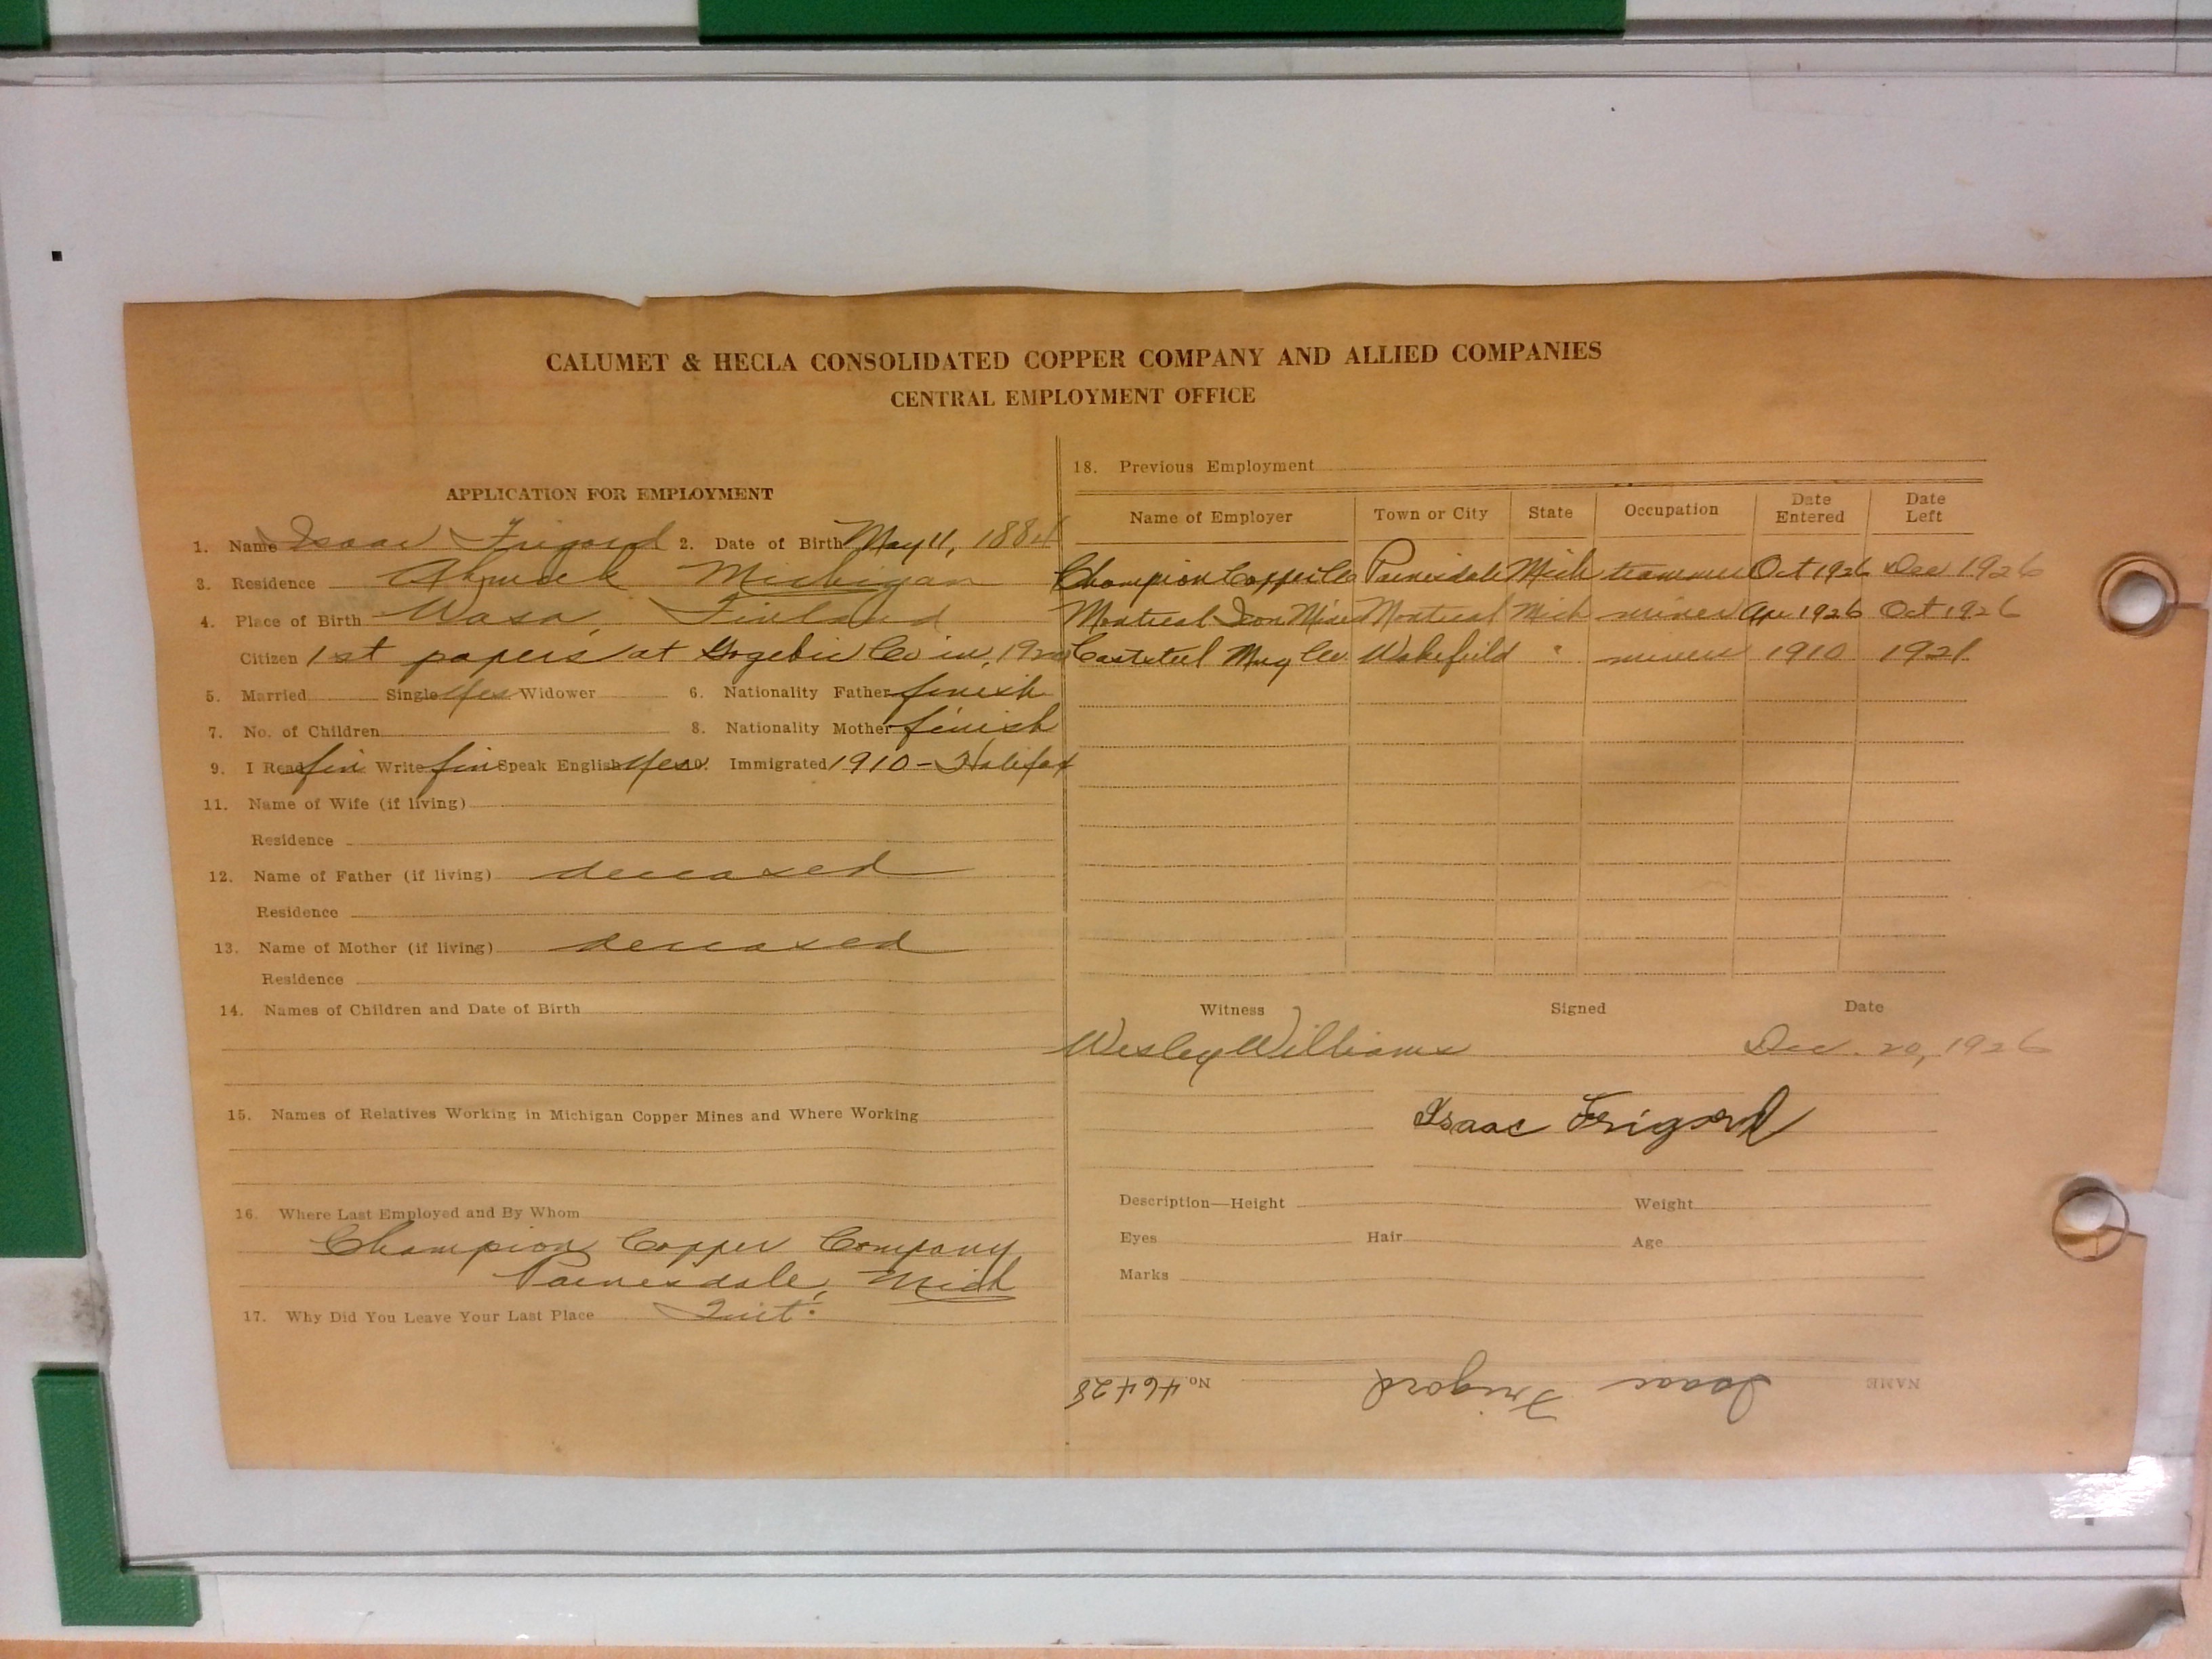 CALUMET & HECLA CONSOLIDATED COPPER COMPANY AND ALLIED COMPANIES
CENTRAL EMPLOYMENT OFFICE
APPLICATION FOR EMPLOYMENT
1. Name Isaac Frigord 2. Date of Birth May 11, 1884
3. Residence Ahmeek Michigan
4. Place of Birth Wasa, Finland
Citizen 1st papers at Gogebic Co in,
5. Married Single Yes Widower 6. Nationality Father finish
7. No. of Children 8. Nationality Mother finish
9. I Read fin Write fin Speak English Yes 10. Immigrated 1910 - Halifax
11. Name of Wife (if living)
Residence
12. Name of Father (if living) deceased
Residence
13. Name of Mother (if living) deceased
Residence
14. Names of Children and Date of Birth
15. Names of Relatives Working in Michigan Copper Mines and Where Working
16. Where Last Employed and By Whom
Champion Copper Company
Painesdale, Mich
17. Why Did You Leave Your Last Place Quit.
18. Previous Employment
Name of Employer Town or City State Occupation Date Entered Date Left
Champion Copper Co Painesdale Mich trammer Oct 1926 Dec 1926
Montreal Iron Mine Montreal Mich miner Ap 1926 Oct 1926
Mng Co Wakefield " miner 1910 1921
Witness Signed Date
Wesley Williams Dec. 20, 1926
Isaac Frigord
Description—Height Weight
Eyes Hair Age
Marks
NAME Isaac Frigord No. 46428